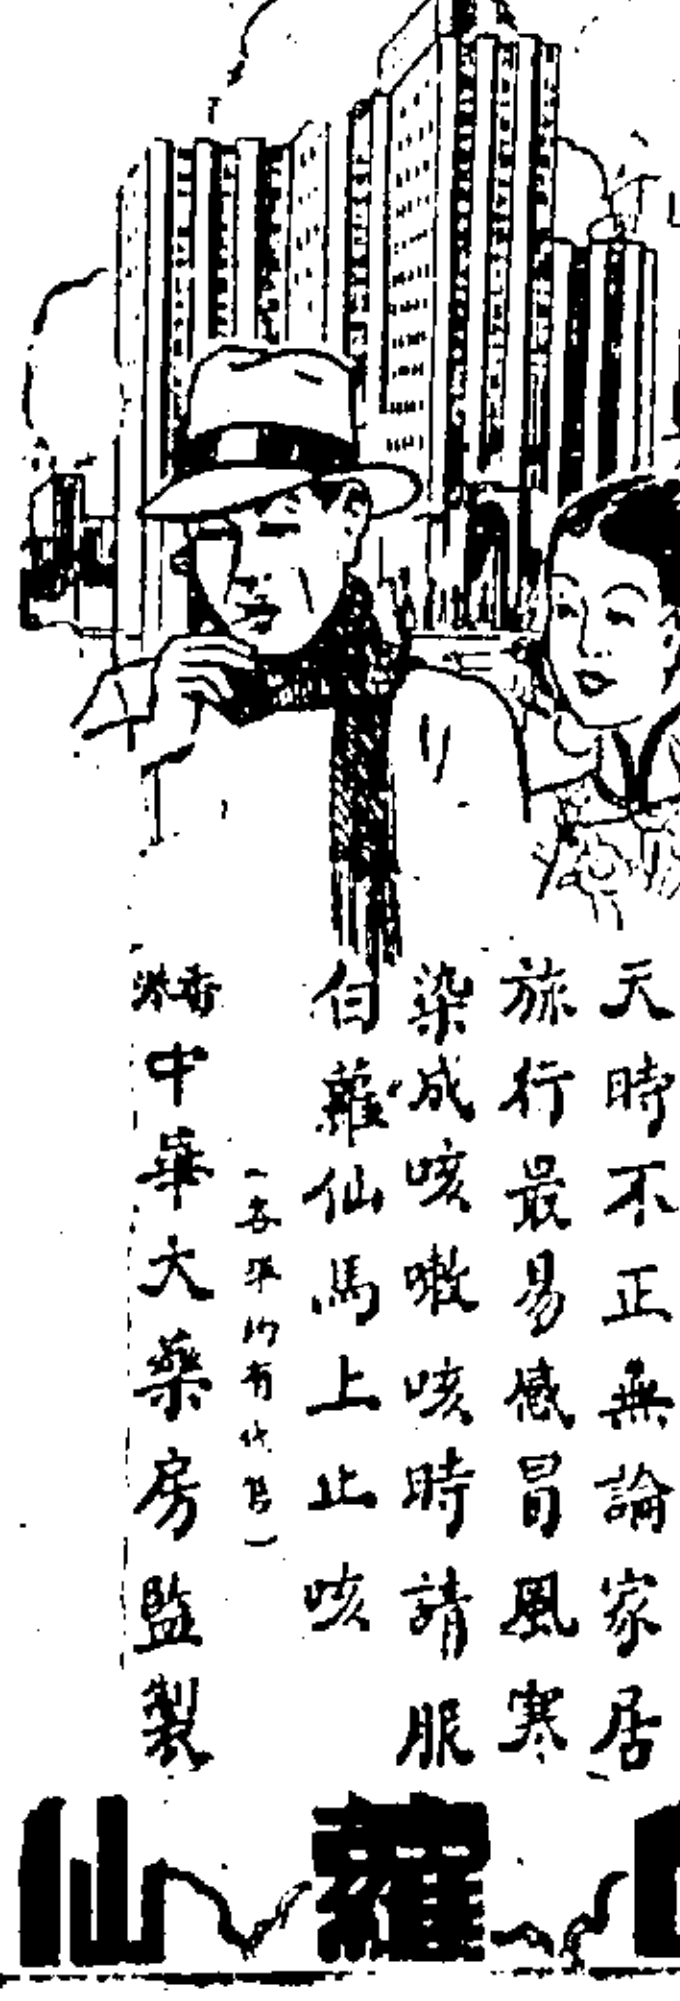 天時不正無論家居
旅行最易感冒風寒
染成咳嗽咳時請服
伯蘿仙馬上止咳
(各埠均有代售)
中華大藥房監製
蘿仙